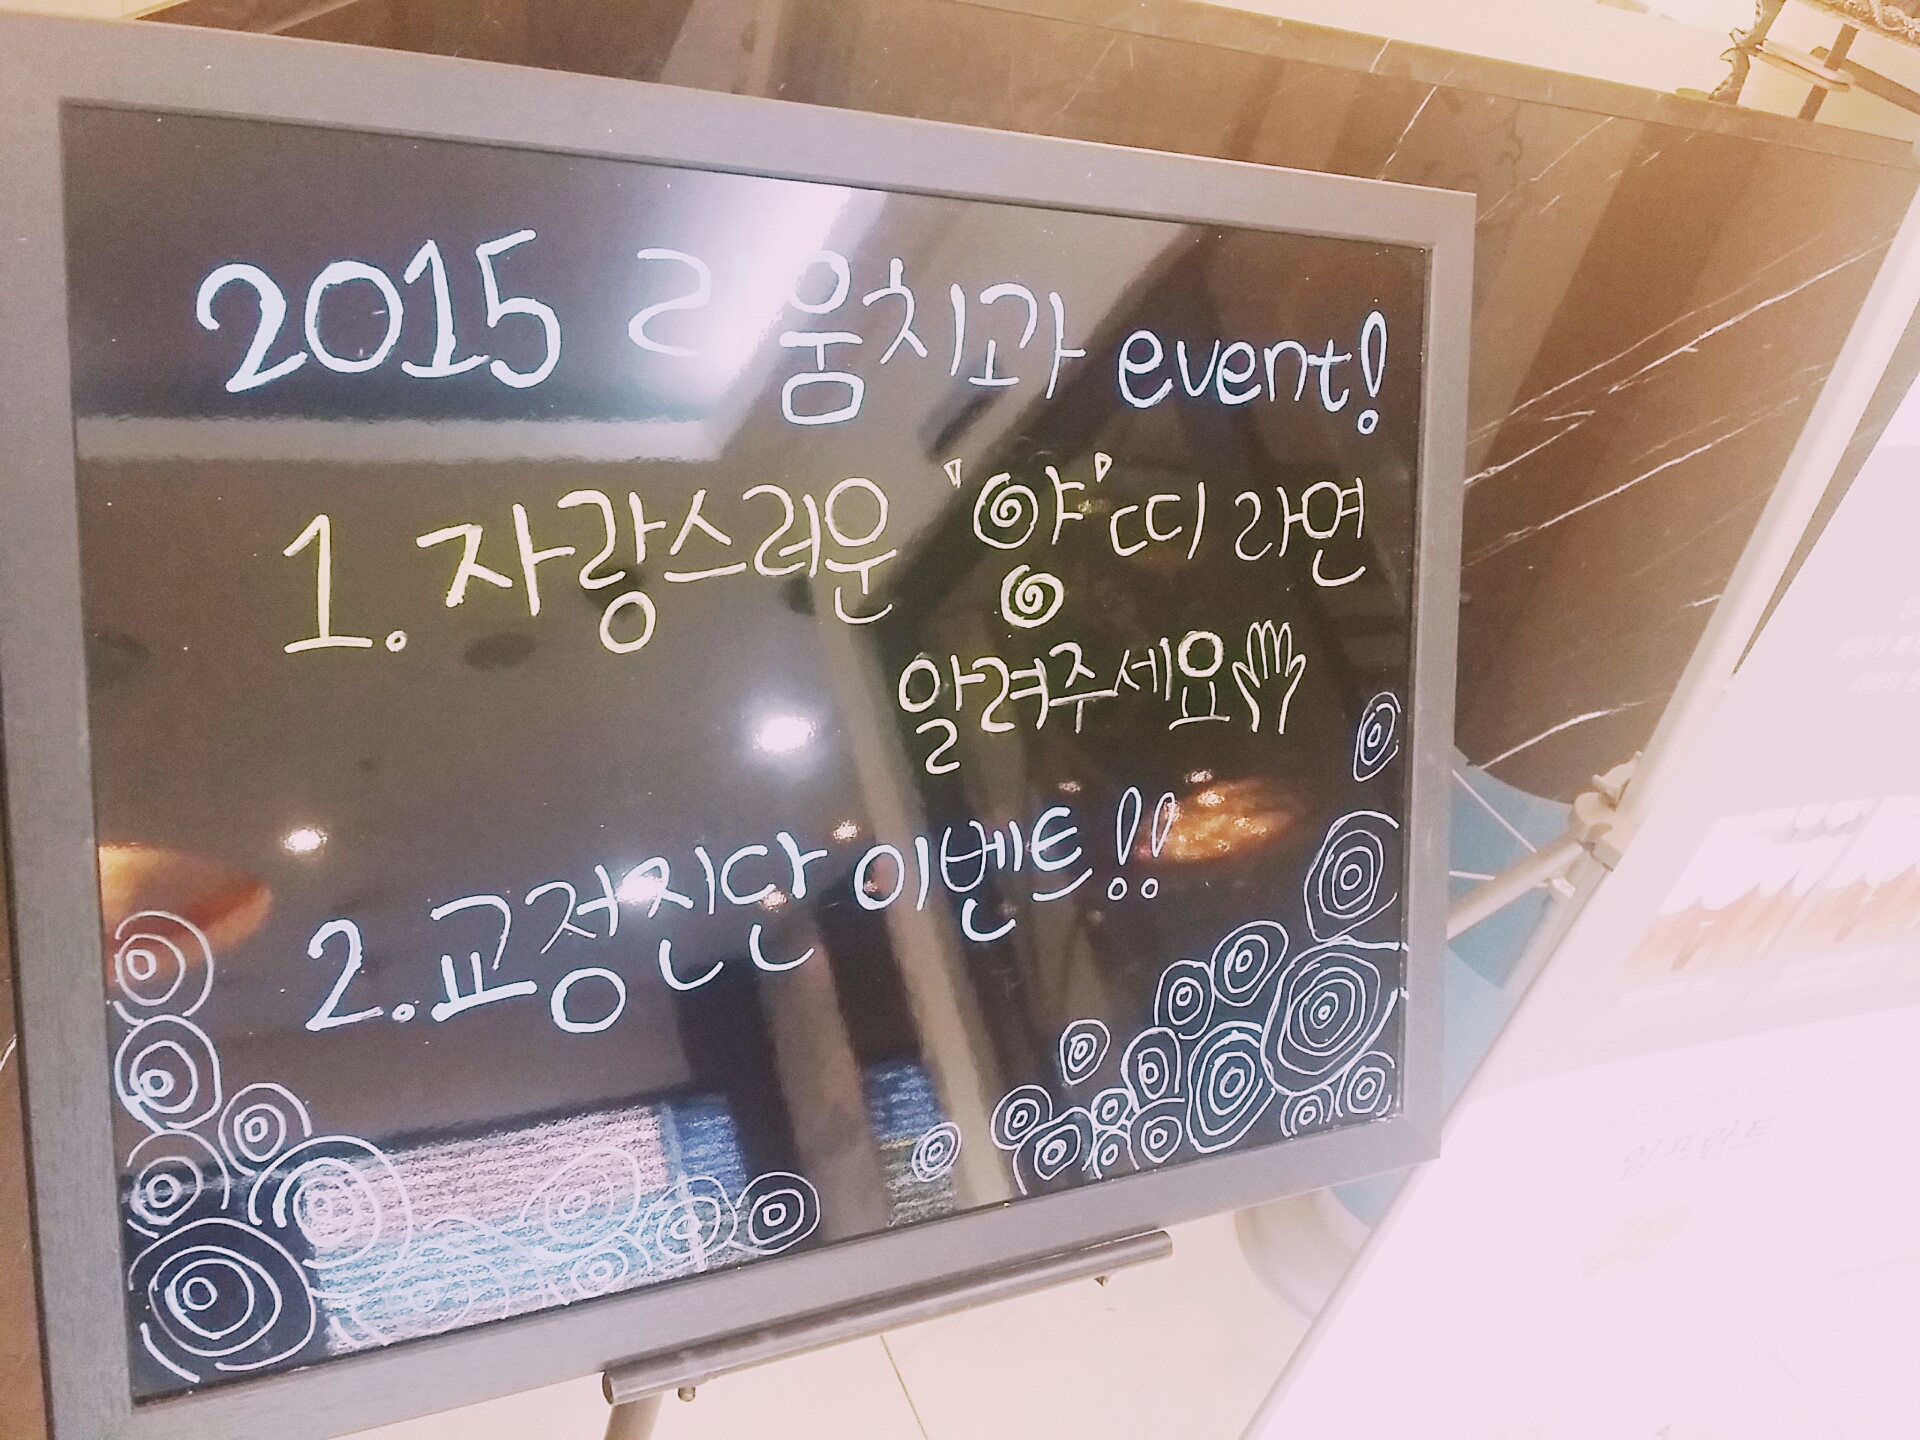 2015 리움치과 event!
1. 자랑스러운 '양'띠 라면
알려주세요
2. 교정진단 이벤트!!
임플란트